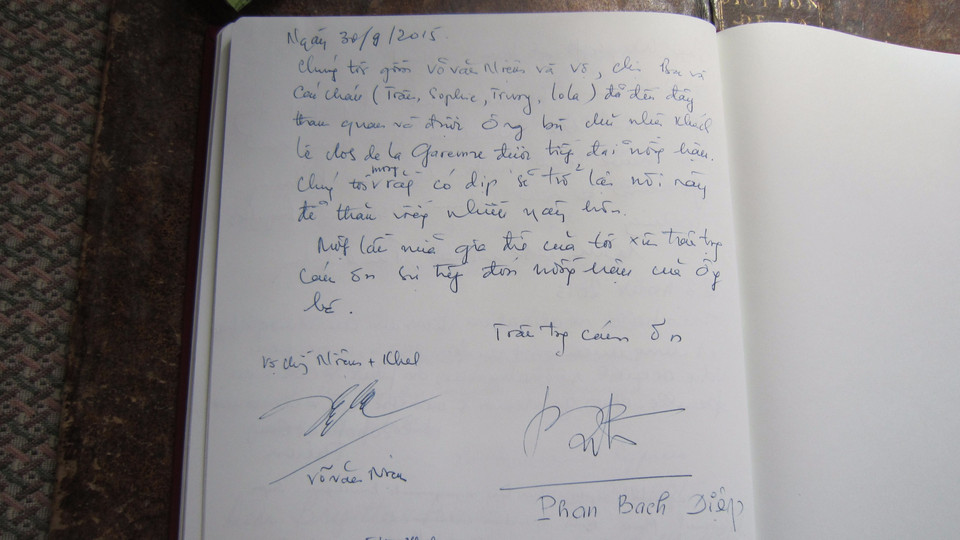 Ngày 30/9/2015.
Chúng tôi gồm Võ văn Niệm và vợ, chị Ba và
các cháu (Trân, Sophie, Trung, Lola) đã đến đây
tham quan và được ông bà chủ nhà khách
le clos de la Garenne được tiếp đãi nồng hậu.
Chúng tôi mong rằng có dịp sẽ trở lại nơi này
để thăm viếng nhiều ngày hơn.
Một lần nữa gia đình của tôi xin trân trọng
cám ơn sự tiếp đón nồng hậu của ông
bà.
Trân trọng cám ơn
vợ chồng Niệm + Khel
Võ văn Niệm
Phan Bach Diệp